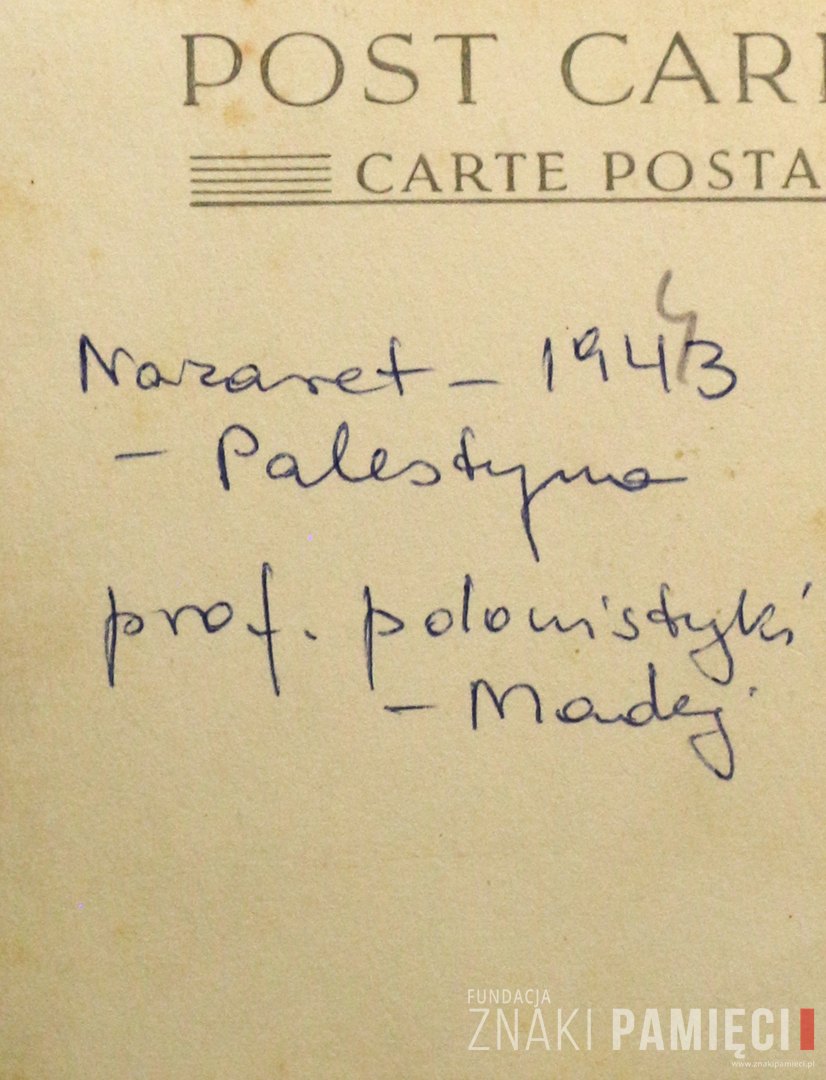 POST CAR
CARTE POSTA
Nazaret – 1943
4
– Palestyna
prof. polonistyki
– Madej
FUNDACJA
ZNAKI PAMIĘCI
www.znakipamieci.pl